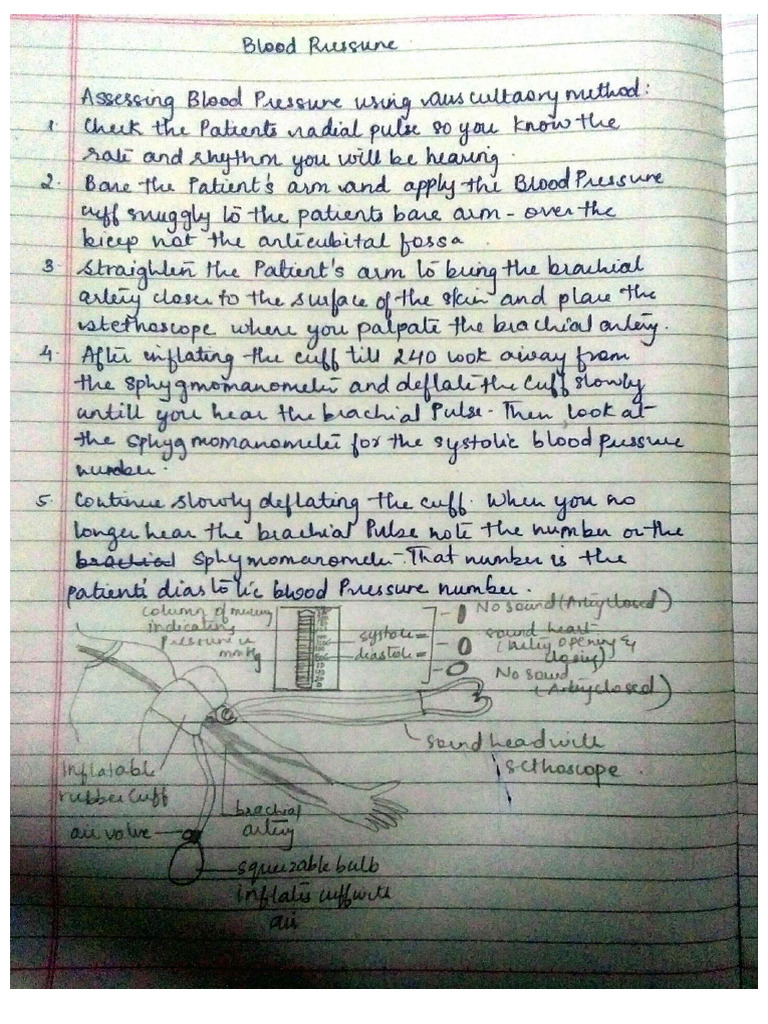 Blood Pressure
Assessing Blood Pressure using auscultaory method:
1. Check the Patients radial pulse so you know the
rate and rhythm you will be hearing.
2. Bare the Patient's arm and apply the Blood Pressure
cuff snuggly to the patients bare arm - over the
bicep not the anticubital fossa
3. Straighten the Patient's arm to bring the brachial
artery closer to the surface of the skin and place the
stethoscope where you palpate the brachial artery.
4. After inflating the cuff till 240 look away from
the sphygmomanometer and deflate the cuff slowly
untill you hear the brachial Pulse. Then look at
the sphygmomanometer for the systolic blood pressure
number.
5. Continue slowly deflating the cuff. When you no
longer hear the brachial Pulse note the number on the
brachial sphymomanometer. That number is the
patients diastolic blood Pressure number.
column of mercury
indicating
Pressure in
mmHg
systole =
diastole =
No sound (Artery closed)
sound heart
(Artery opening &
closing)
No sound
(Artery closed)
sound head with
sethoscope.
Inflatable
rubber cuff
air valve
brachial
artery
squeezable bulb
inflates cuff with
air